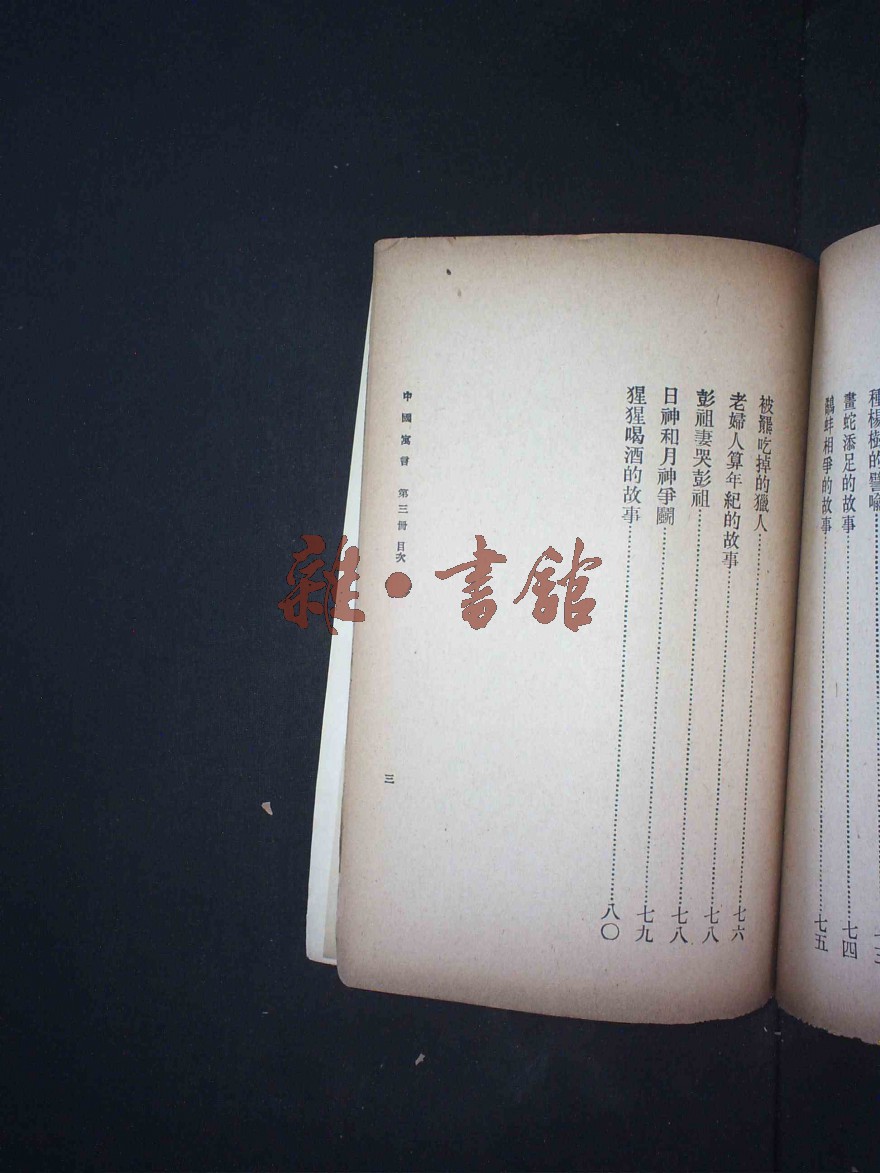 種楊樹的譬喻
畫蛇添足的故事 七四
鷸蚌相爭的故事 七五
被羆吃掉的獵人 七六
老婦人算年紀的故事 七八
彭祖妻哭彭祖 七八
日神和月神爭鬭 七九
猩猩喝酒的故事 八〇
中國寓言 第三冊 目次
三
雜·書館